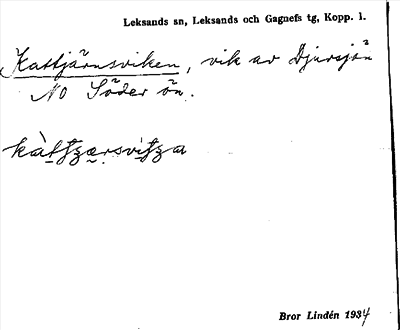 Leksands sn, Leksands och Gagnefs tg, Kopp. l.
Kattjärnsviken, vik av Djursjön
NO Söder ön.
Bror Lindén 1934